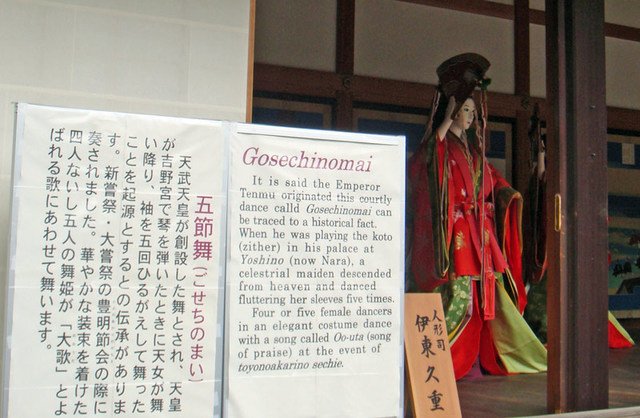 五節舞(ごせちのまい)
天武天皇が創設した舞とされ、天皇
が吉野宮で琴を弾いたときに天女が舞
い降り、袖を五回ひるがえして舞った
ことを起源とするとの伝承がありま
す。新嘗祭・大嘗祭の豊明節会の際に
奏されました。華やかな装束を着けた
四人ないし五人の舞姫が「大歌」とよ
ばれる歌にあわせて舞います。
Gosechinomai
It is said the Emperor
Tenmu originated this courtly
dance calld Gosechinomai can
be traced to a historical fact.
When he was playing the koto
(zither) in his palace at
Yoshino (now Nara), a
celestrial maiden descended
from heaven and danced
fluttering her sleeves five times.
Four or five female dancers
in an elegant costume dance
with a song called Oo-uta (song
of praise) at the event of
toyonoakarino sechie.
人形司
伊東久重